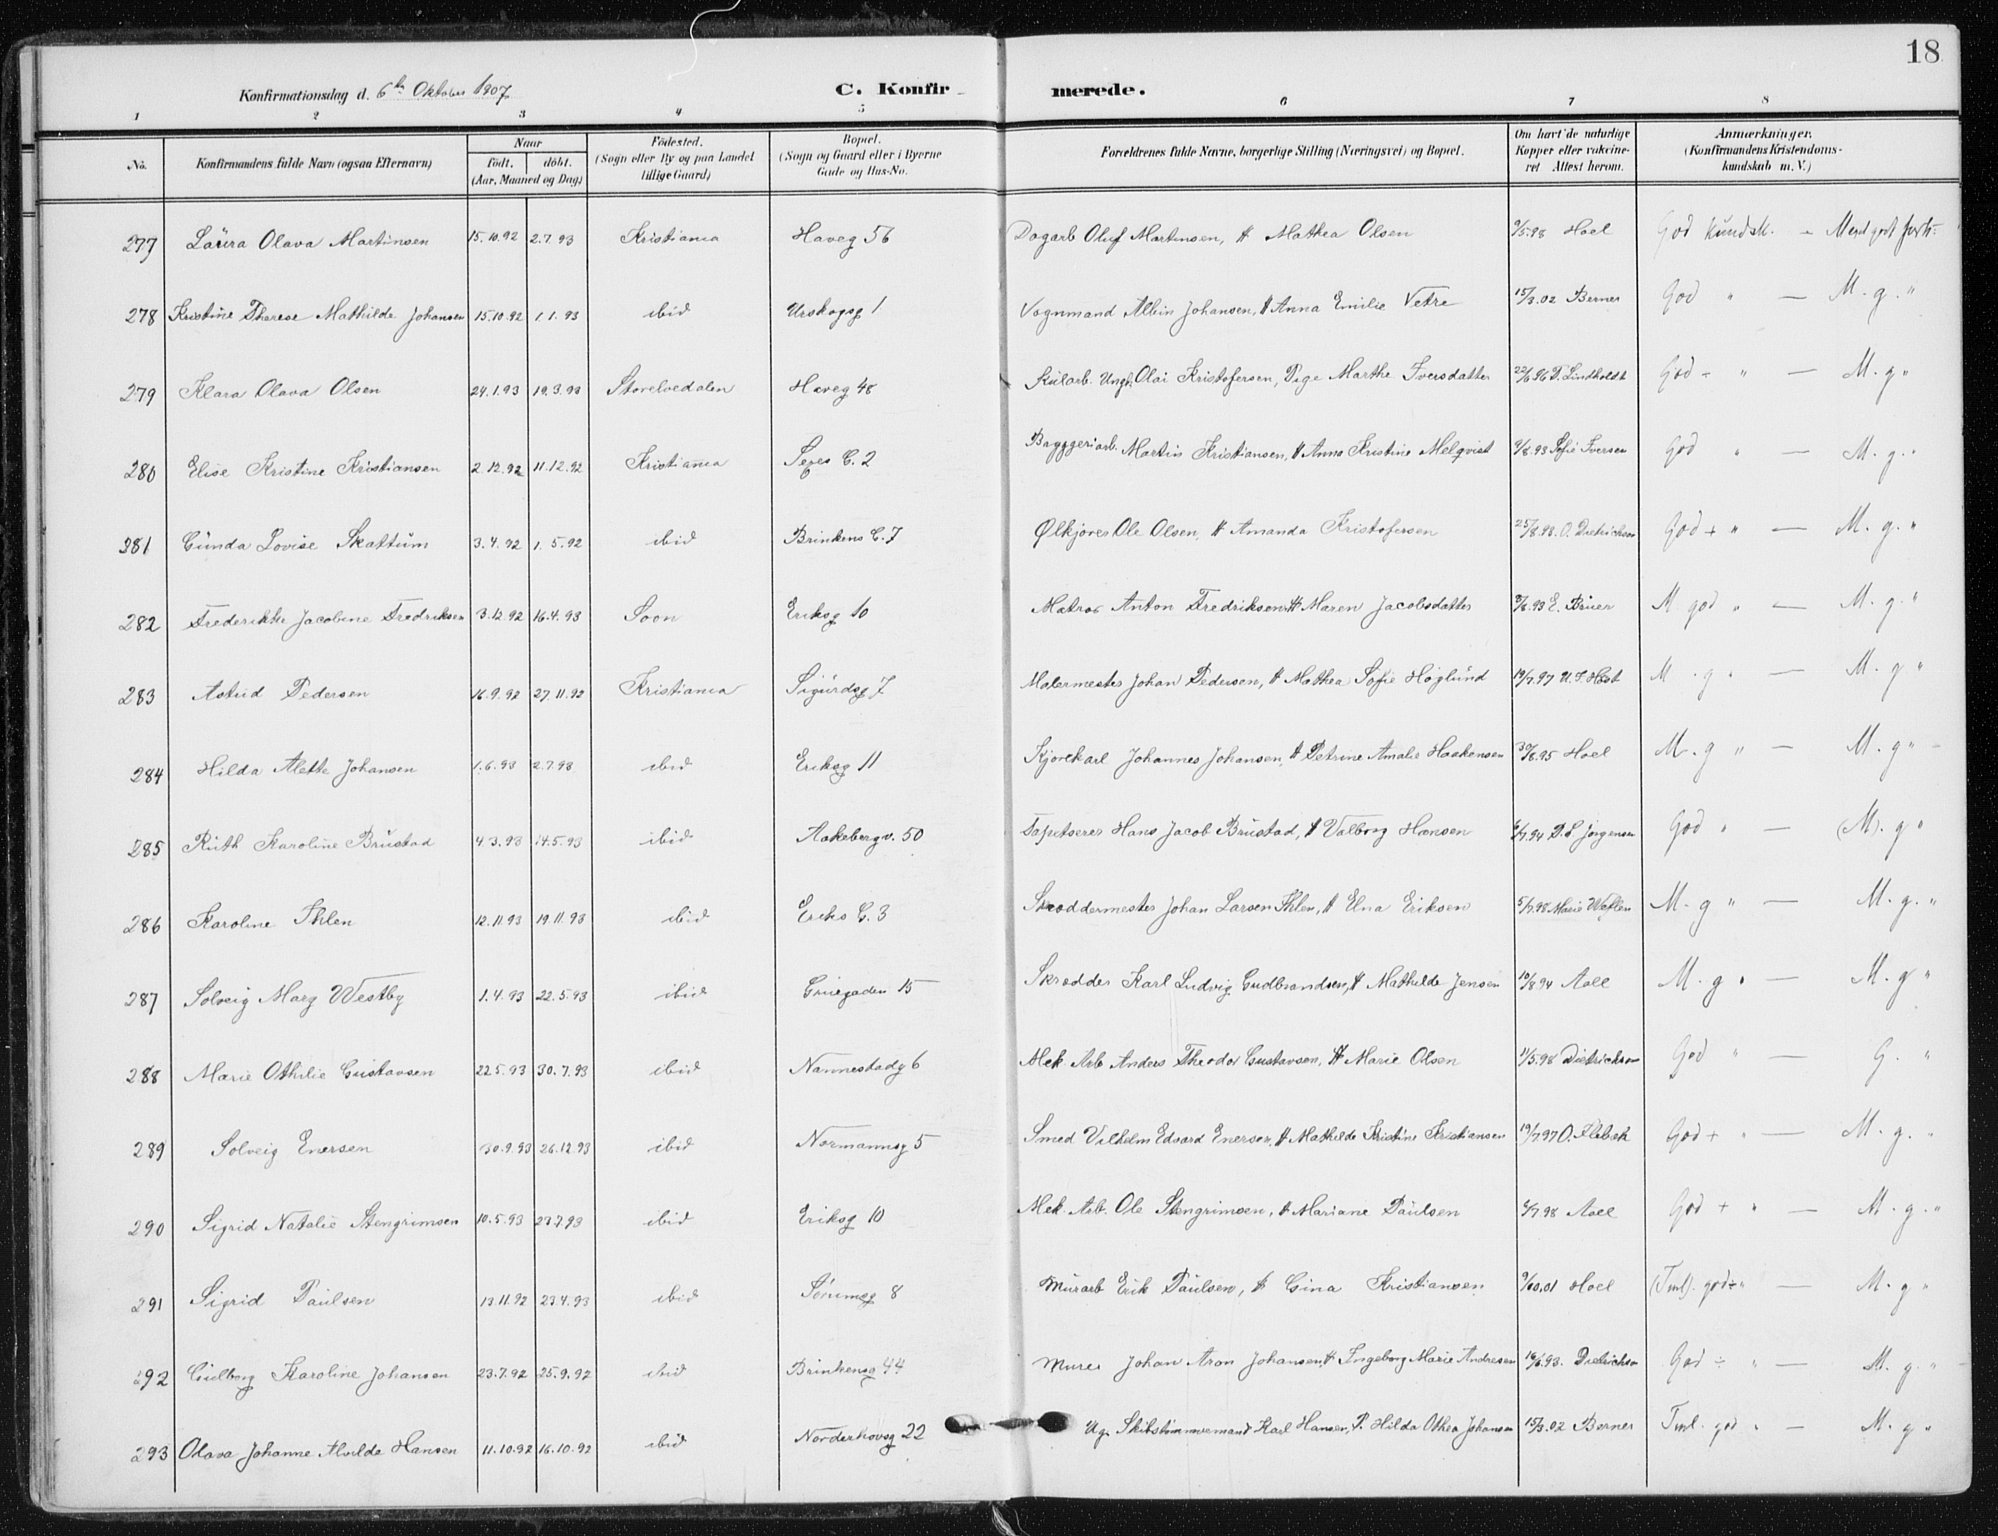 18
Konfirmationsdag d. 6te Oktober 1907
C. Konfirmerede.
1 2 3 4 5 6 7 8
No. | Konfirmandens fulde Navn (ogsaa Efternavn) | Naar født. døbt. (Aar, Maaned og Dag) | Fødested. (Sogn eller By og paa Landet tillige Gaard) | Bopæl. (Sogn og Gaard eller i Byerne Gade og Hus-No. | Forældrenes fulde Navne, borgerlige Stilling (Næringsvei) og Bopæl. | Om havt de naturlige Kopper eller vakcineret Attest herom. | Anmærkninger. (Konfirmandens Kristendomskundskab m. V.)
277 Laura Olava Martinsen 15.10.92 2.7.93 Kristiania Haveg 56 Dagarb Oluf Martinsen, H Mathea Olsen 9/5.98 Hoel God Kundsk. — Meget godt forh.
278 Kristine Therese Mathilde Johansen 15.10.92 1.1.93 ibid Urskogsg 1 Vognmand Albin Johansen, H Anna Emilie Vetre 15/3.02 Berner God " — M. g. "
279 Klara Olava Olsen 24.1.93 19.3.93 Storelvedalen Haveg 48 Kularb. Ungk. Olai Kristofersen, Pige Marthe Iversdatter 22/6.96 P. Lindholdt God ÷ " — M. g "
280 Elise Kristine Kristiansen 2.12.92 11.12.92 Kristiania Seges G. 2 Bryggeriarb. Martin Kristiansen, H Anna Kristine Melqvist 9/8.93 Sofie Iversen God " — M. g. "
281 Gunda Lovise Skattum 3.4.92 1.5.92 ibid Brinkens G. 7 Ølkjører Ole Olsen, H Amanda Kristofersen 25/8.98. O. Dietrichson God + " — M. g. "
282 Frederikke Jacobine Fredriksen 3.12.92 16.4.93 Soon Eriksg 10 Matros Anton Fredriksen H Maren Jacobsdatter 3/6.93 E. Bruer M god " — M. g. "
283 Astrid Pedersen 16.9.92 27.11.92 Kristiania Sigurdsg 7 Malermester Johan Pedersen, H Mathea Sofie Höglund 19/7.97 U. F. Höst M . g " — M. g "
284 Hilda Alette Johansen 1.6.93 2.7.93 ibid Eriksg 11 Kjørekarl Johannes Johansen, H Petrine Amalie Haakensen 30/8.95 Hoel M. g " — M. g "
285 Ruth Karoline Brustad 4.3.93 14.5.93 ibid Aakebergv. 50 Tapetserer Hans Jacob Brustad, H Valborg Hansen 6/7.94 D. S. Jørgensen God " — (M). g "
286 Karoline Ihlen 12.11.93 19.11.93 ibid Eriks G. 3 Skræddermester Johan Larsen Ihlen, H Elna Eriksen 5/7.98 Marie Weflen M. g " — M. g. "
287 Solveig Marg Westby 1.4.93 22.5.93 ibid Gruegaden 15 Skrædder Karl Ludvig Gudbrandsen, H Mathilde Jensen 10/8.94 Aall M. g " — M. g "
288 Marie Othilie Gustavsen 22.5.93 30.7.93 ibid Nannestadg 6 Mek. Arb Anders Theodor Gustavsen, H Marie Olsen 11/5.98 Dietrichson God " — G. "
289 Solveig Enersen 30.9.93 26.12.93 ibid Normannsg 5 Smed Vilhelm Edvard Enersen, H Mathilde Kristine Kristiansen 19/7.97 O. Flebeek God + " — M. g. "
290 Sigrid Natalie Stengrimsen 10.5.93 23.7.93 ibid Eriksg 10 Mek. Arb. Ole Stengrimsen, H Mariane Paulsen 6/7.98 Aall God + " — M. g. "
291 Sigrid Paulsen 13.11.92 23.4.93 ibid Sørumsg 8 Murarb Erik Paulsen, H Gina Kristiansen 9/10.01 Hoel (Tml). god ÷ " — M. g "
292 Gudborg Karoline Johansen 23.7.92 25.9.92 ibid Brinkensg 44 Murer Johan Aron Johansen H Ingeborg Marie Andresen 16/6.93. Dietrichson God ÷ " — M. g. "
293 Olava Johanne Alvilde Hansen 11.10.92 16.10.92 ibid Norderhovsg 22 Ug. Skibstimmermand Karl Hansen, P. Hilda Othea Johansen 15/3.02 Berner Tml. god " — M. g "